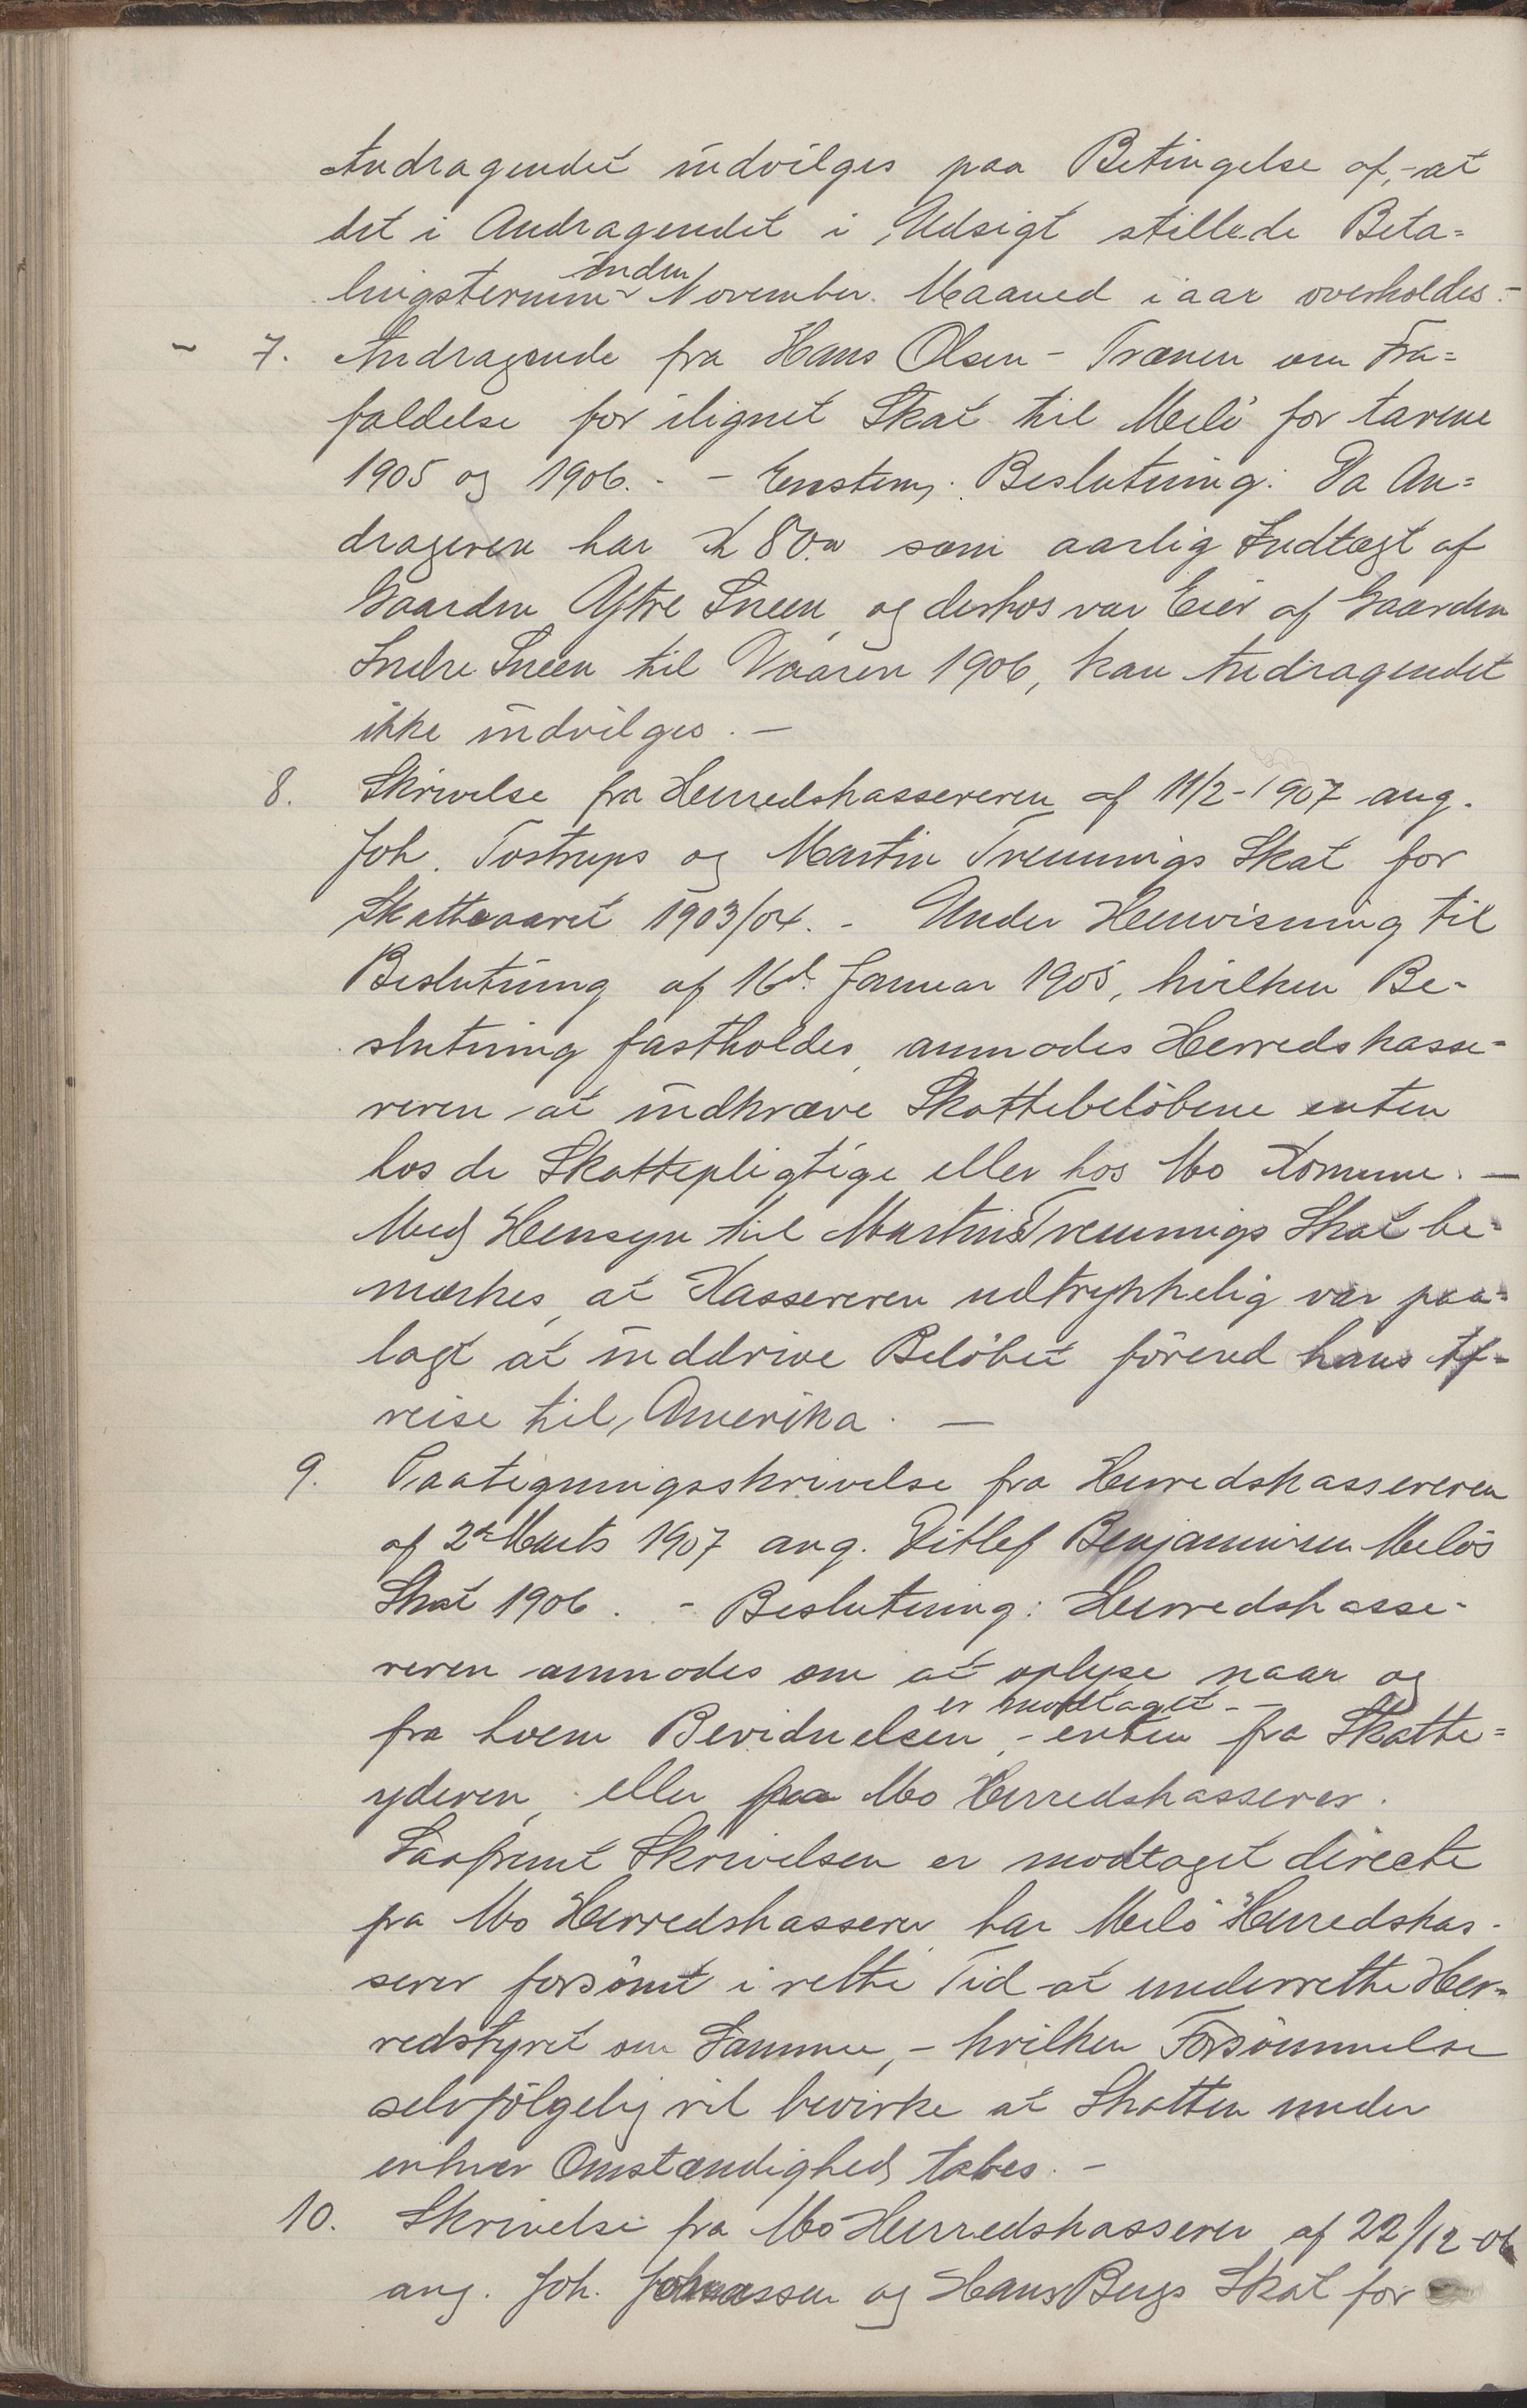 Andragendet indvilges paa Betingelse af, - at
det i Andragendet i Udsigt stillede Beta=
lingstermin inden November Maaned iaar overholdes. -
- 7. Andragende fra Hans Olsen - Trænen om Fra=
faldelse for ilignet Skat til Melö for Aarene
1905 og 1906. - Enstem. Beslutning: Da An=
drageren har K 80.00 som aarlig Indtægt af
Gaarden Ytre Sneen, og derhos var Eier af Gaarden
Indre Sneen til Vaaren 1906, kan Andragendet
ikke indvilges. -
8. Skrivelse fra Herredskassereren af 11/2-1907 ang.
Joh. Tostrups og Martin Trennings Skat for
Skatteaaret 1903/04. - Under Henvisning til
Beslutning af 16d. Januar 1905, hvilken Be-
slutning fastholdes, anmodes Herredskasse-
reren at indkræve Skattebelöbene enten
hos de Skattepligtige eller hos Mo Komune. -
Med Hensyn til Martin Trennings Skat be-
mærkes, at Kassereren udtrykkelig var paa-
lagt at inddrive Belöbet förend hans Af-
reise til Amerika. -
9. Paategningsskrivelse fra Herredskassereren
af 2d Marts 1907 ang. Ditlef Benjaminsen Melös
Skat 1906. - Beslutning: Herredskasse-
reren anmodes om at oplyse naar og
fra hvem Bevidnelsen er modtaget - - enten fra Skatte=
yderen, eller fra Mo Herredskasserer.
Saafremt Skrivelsen er modtaget directe
fra Mo Herredskasserer, har Melö Herredskas-
serer forsömt i rette Tid at underrette Her-
redstyret om Samme, - hvilken Forsömmelse
selvfölgelig vil bevirke at Skatten under
enhver Omstændighed tabes. -
10. Skrivelse fra Mo Herredskasserer af 22/12-06
ang. Joh. Johnassen og Hans Bergs Skat for